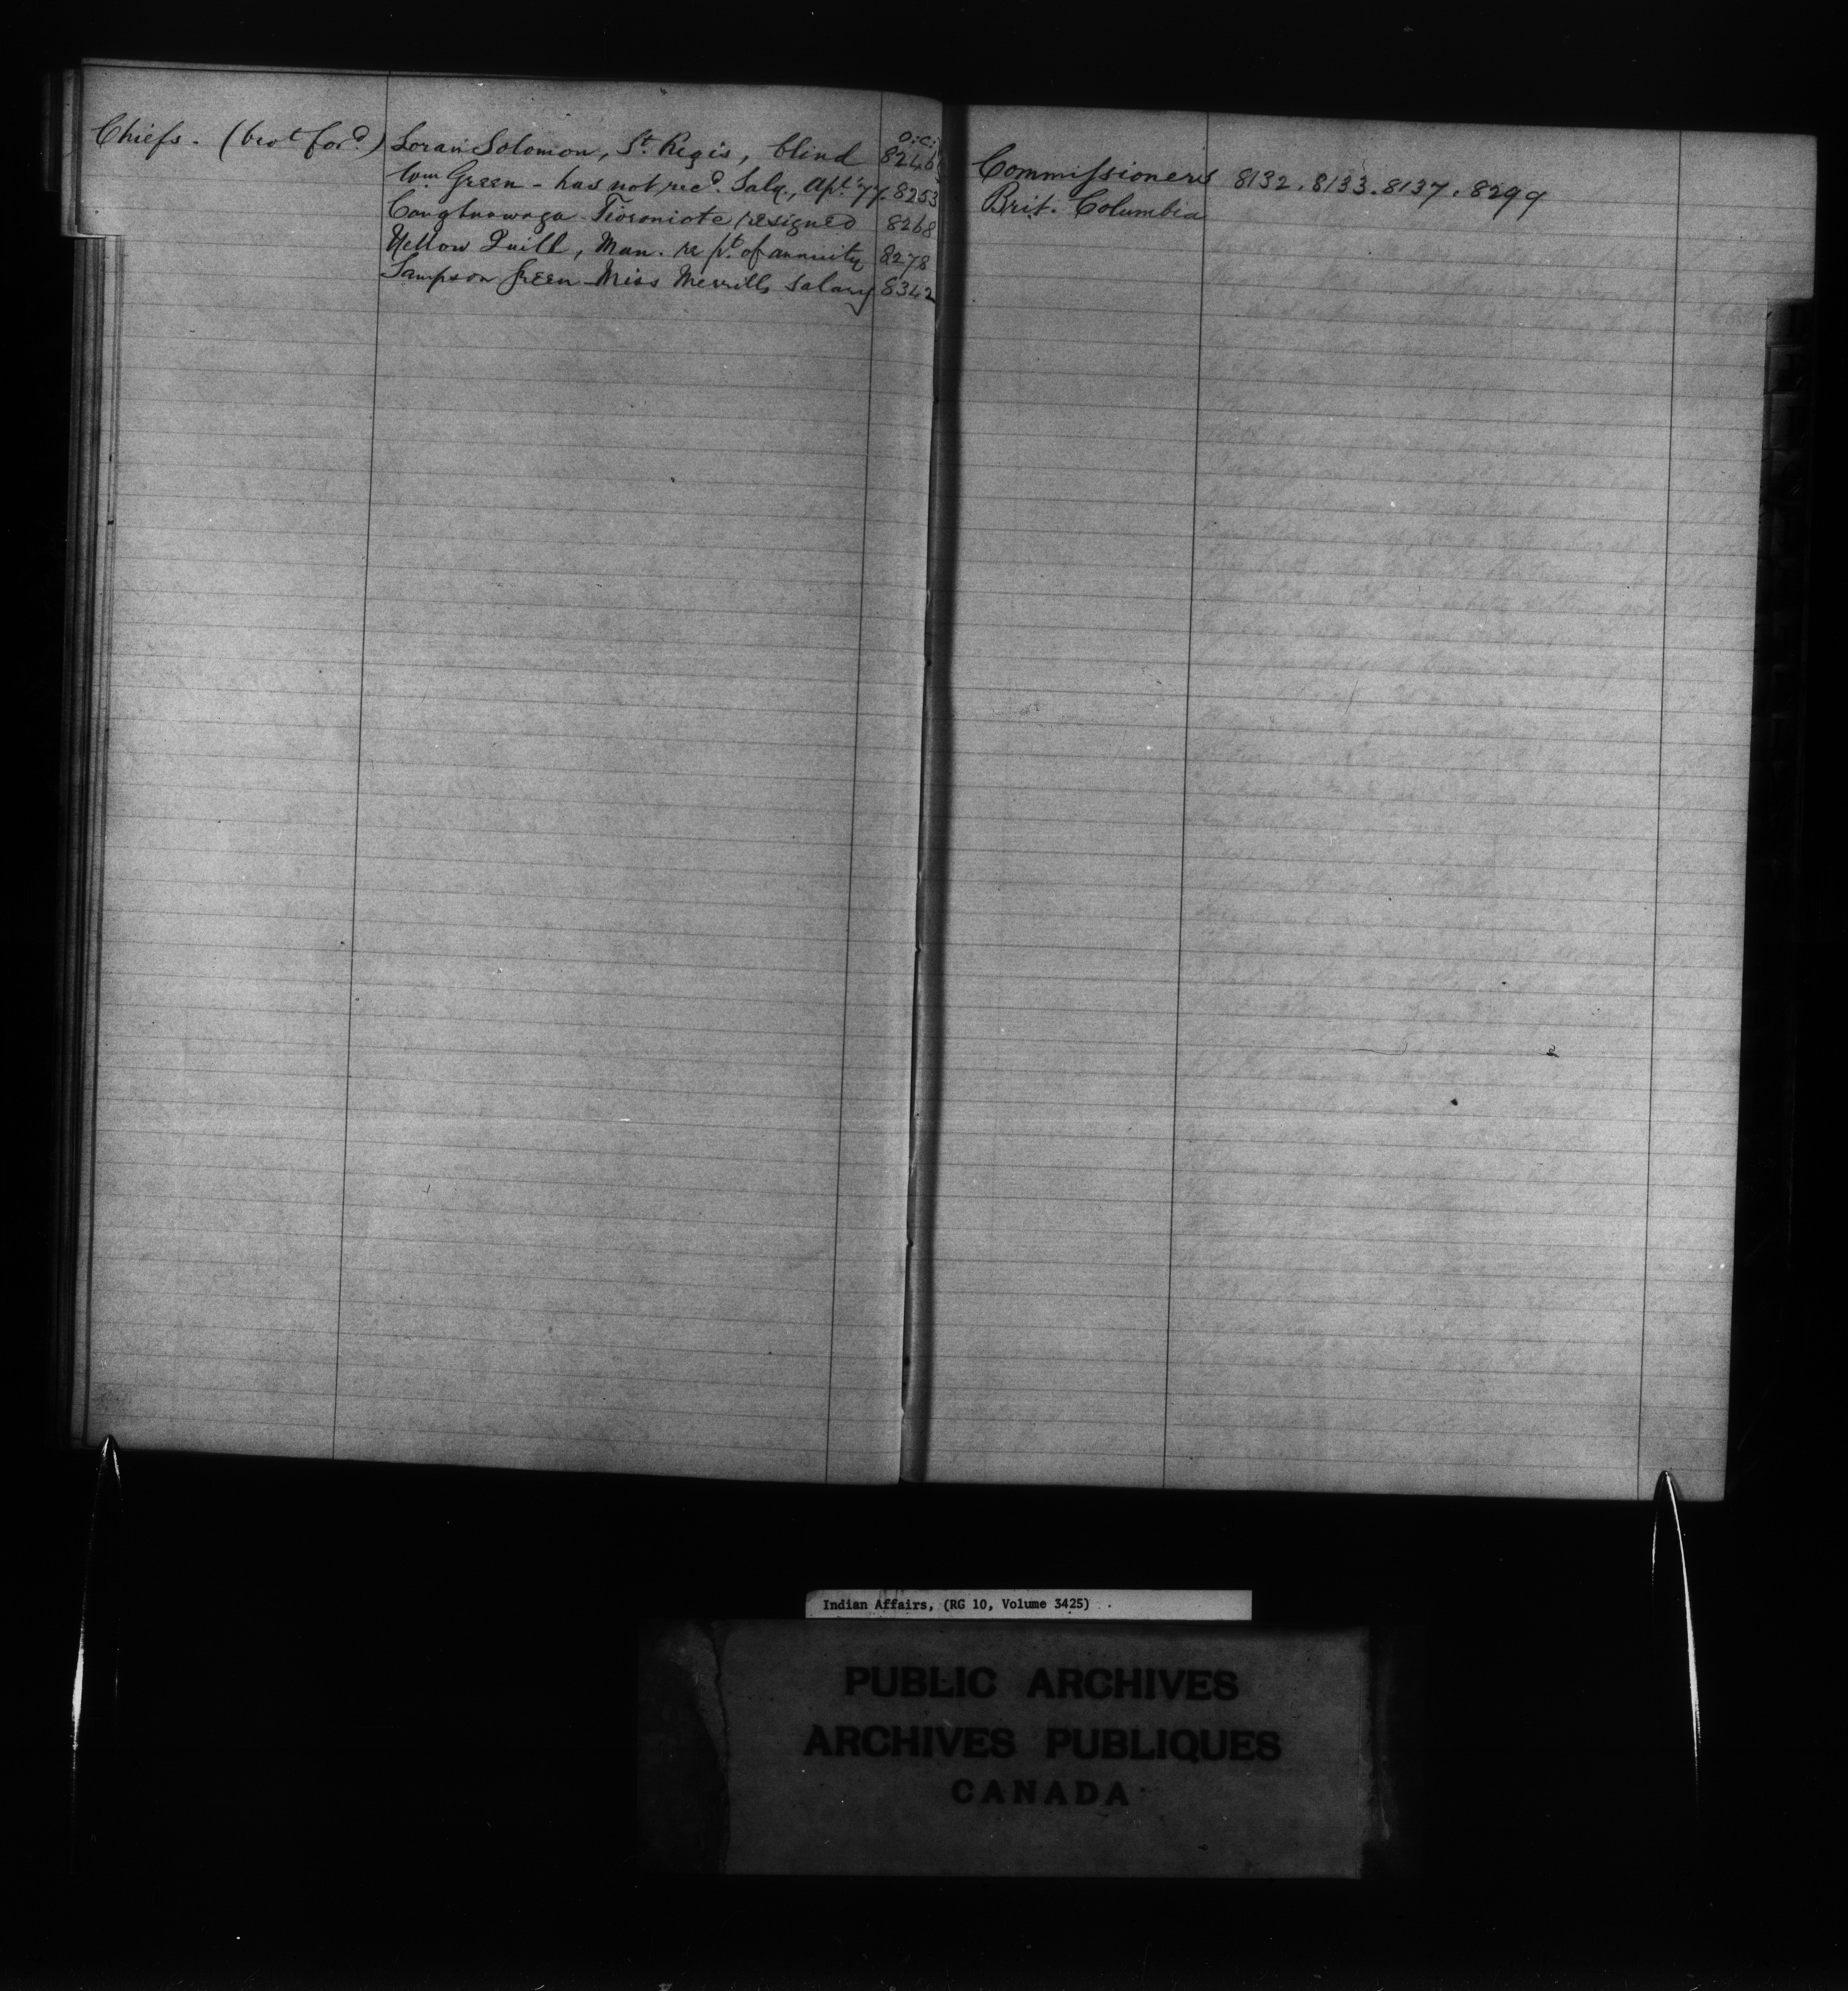 Chiefs. (brot ford) Loran Solomon, St. Regis, blind O.C. 8246
Wm Green - has not recd. Saly, Apl. '77. 8253
Caughnawaga - Tioroniote resigned 8268
Yellow Quill, Man. re pt. of annuity 8278
Sampson Green - Miss Merrills Salary 8342
Commissioners 8132. 8133. 8137. 8299
Brit. Columbia
Indian Affairs, (RG 10, Volume 3425)
PUBLIC ARCHIVES
ARCHIVES PUBLIQUES
CANADA